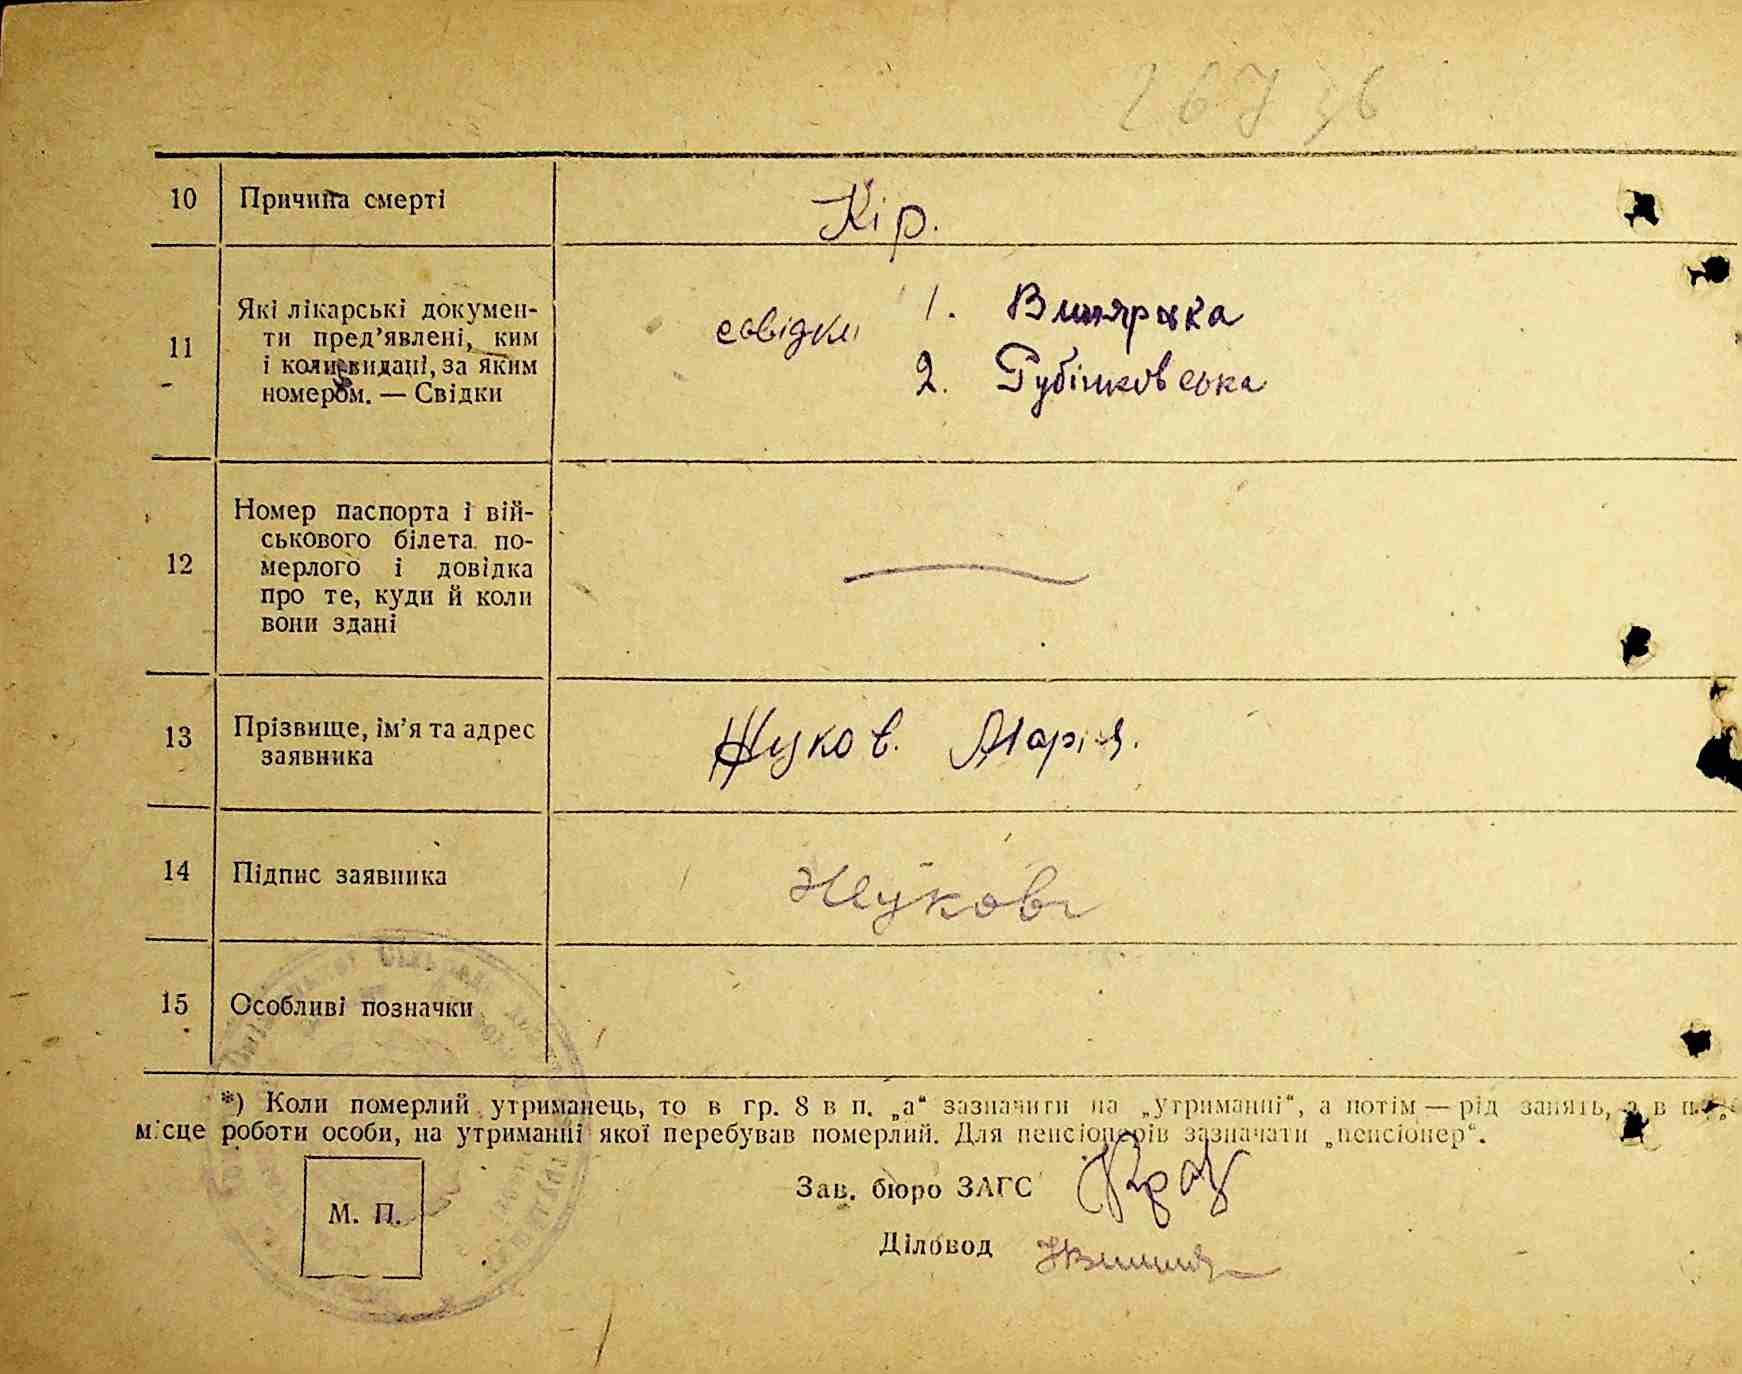 10 Причина смерті Кір.
11 Які лікарські докумен-
ти пред’явлені, ким
і коли видані, за яким
номером. — Свідки
свідки 1.
2. Рубінковська
12 Номер паспорта і вій-
ськового білета по-
мерлого і довідка
про те, куди й коли
вони здані
13 Прізвище, ім’я та адрес
заявника
Жуков. Марія.
14 Підпис заявника Жукова
15 Особливі позначки
*) Коли померлий утриманець, то в гр. 8 в п. „а“ зазначити на „утриманні“, а потім — рід занять, а в п.
місце роботи особи, на утриманні якої перебував померлий. Для пенсіонерів зазначати „пенсіонер“.
М. П.
Зав. бюро ЗАГС
Діловод